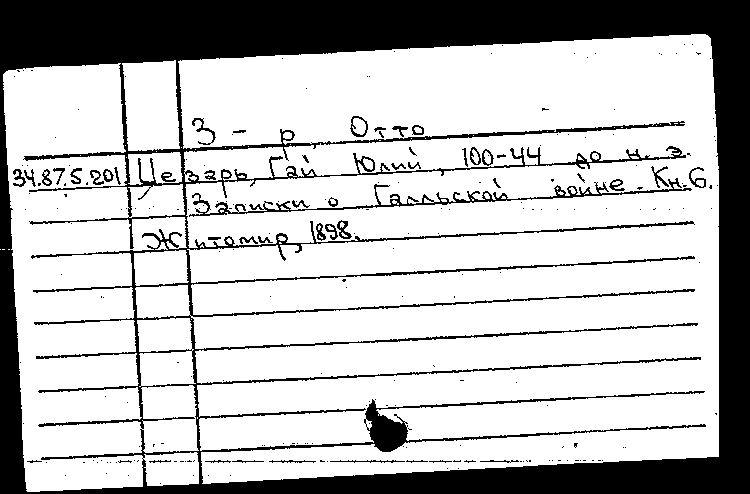 З - р, Отто
34.87.5.201. Цезарь, Гай Юлий, 100-44 до н. э.
Записки о Галльской войне. Кн. 6.
Житомир, 1898.